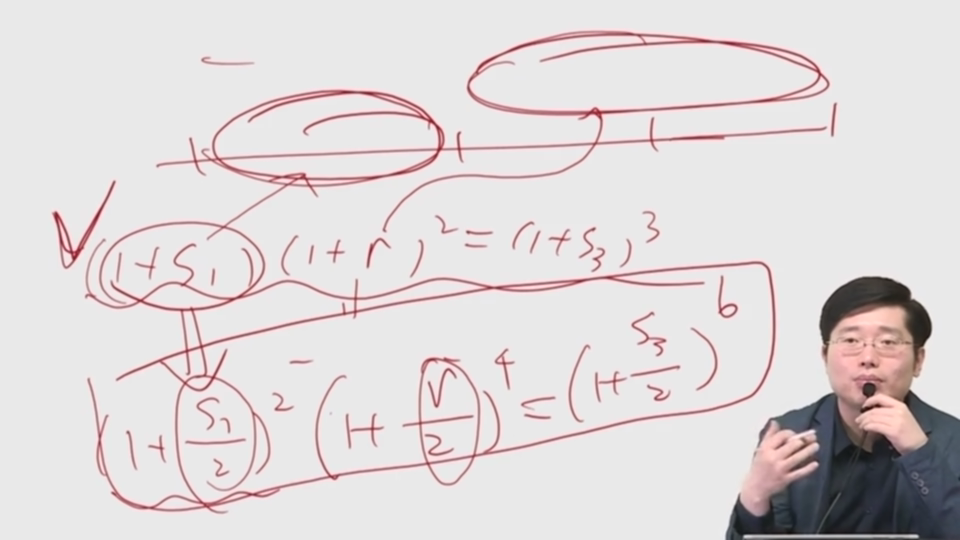 (1+S₁)(1+r)² = (1+S₃)³
(1+S₁/2)² (1+r/2)⁴ = (1+S₃/2)⁶